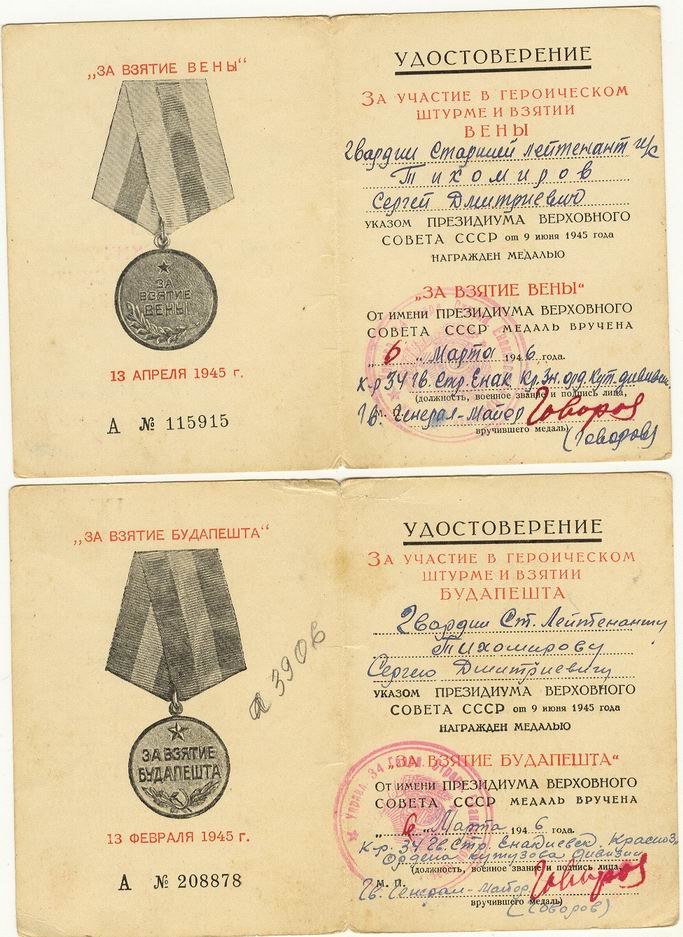 „ЗА ВЗЯТИЕ ВЕНЫ“
ЗА
ВЗЯТИЕ
ВЕНЫ
13 АПРЕЛЯ 1945 г.
А № 115915
УДОСТОВЕРЕНИЕ
ЗА УЧАСТИЕ В ГЕРОИЧЕСКОМ
ШТУРМЕ И ВЗЯТИИ
ВЕНЫ
Гвардии Старший лейтенант и/с
Тихомиров
Сергей Дмитриевич
УКАЗОМ ПРЕЗИДИУМА ВЕРХОВНОГО
СОВЕТА СССР от 9 июня 1945 года
НАГРАЖДЕН МЕДАЛЬЮ
„ЗА ВЗЯТИЕ ВЕНЫ“
ОТ ИМЕНИ ПРЕЗИДИУМА ВЕРХОВНОГО
СОВЕТА СССР МЕДАЛЬ ВРУЧЕНА
„6“ Марта 1946 года.
К-р 34 Гв. Стр. Енак. Кр. Зн. орд. Кут. дивизии
(должность, военное звание и подпись лица,
М.
Гв. Генерал-Майор Говоров
вручившего медаль)
(Говоров)
„ЗА ВЗЯТИЕ БУДАПЕШТА“
ЗА ВЗЯТИЕ
БУДАПЕШТА
13 ФЕВРАЛЯ 1945 г.
А № 208878
УДОСТОВЕРЕНИЕ
ЗА УЧАСТИЕ В ГЕРОИЧЕСКОМ
ШТУРМЕ И ВЗЯТИИ
БУДАПЕШТА
Гвардии Ст. Лейтенанту
Тихомирову
Сергею Дмитриевичу
УКАЗОМ ПРЕЗИДИУМА ВЕРХОВНОГО
СОВЕТА СССР от 9 июня 1945 года
НАГРАЖДЕН МЕДАЛЬЮ
„ЗА ВЗЯТИЕ БУДАПЕШТА“
ОТ ИМЕНИ ПРЕЗИДИУМА ВЕРХОВНОГО
СОВЕТА СССР МЕДАЛЬ ВРУЧЕНА
„6“ Марта 1946 года.
К-р. 34 Гв. Стр. Енакиевск. Красноз.
Ордена Кутузова дивизии
(должность, военное звание и подпись лица,
М. П.
Гв. Генерал-Майор Говоров
вручившего медаль)
(Говоров)